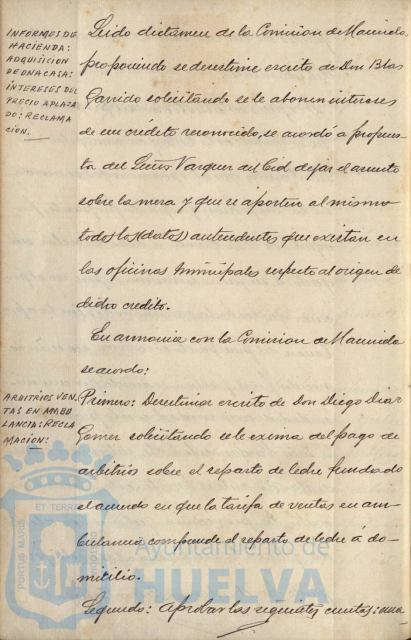 INFORMES DE
HACIENDA:
ADQUISICION
DE UNA CASA:
INTERESES DEL
PRECIO APLAZA
DO: RECLAMA
CION.
Leido dictamen de la Comision de Hacienda
proponiendo se desestime escrito de Don Blas
Garrido solicitando se le abonen intereses
de un crédito reconocido, se acordó a propues-
ta del Señor Vazquez del Cid dejar el asunto
sobre la mesa y que se aporten al mismo
todos los (datos) antecedentes que existan en
las oficinas municipales respecto al origen de
dicho credito.
En armonia con la Comision de Hacienda
se acordo:
ARBITRIOS VEN-
TAS EN AMBU
LANCIA: RECLA
MACION:
Primero: Desestimar escrito de Don Diego Diaz
Gomez solicitando se le exima del pago de
arbitrios sobre el reparto de leche fundado
el acuerdo en que la tarifa de ventas en am-
bulancia comprende el reparto de leche á do-
micilio.
Segundo: Aprobar las siguientes cuentas: una
PORTUS MARIS ET TERRAE
Ayuntamiento de
HUELVA